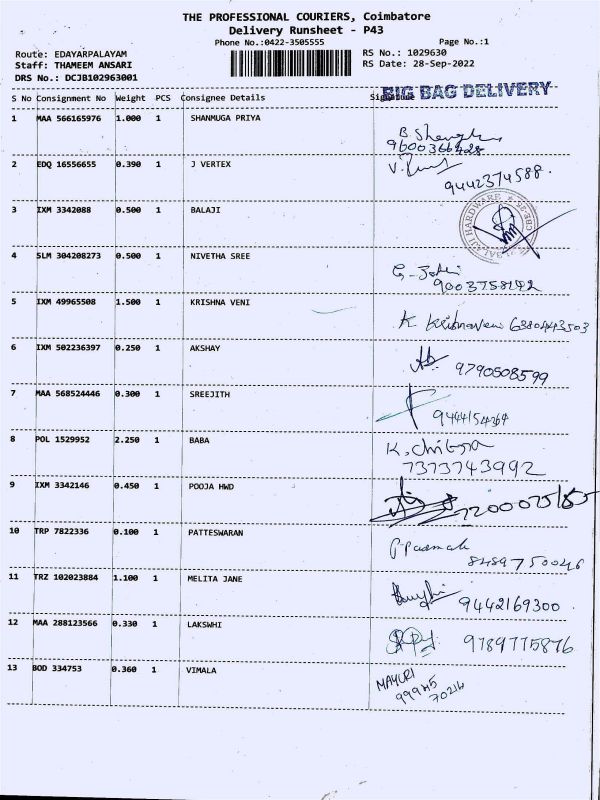 THE PROFESSIONAL COURIERS, Coimbatore
Delivery Runsheet - P43
Phone No.:0422-3505555 Page No.:1
Route: EDAYARPALAYAM RS No.: 1029630
Staff: THAMEEM ANSARI RS Date: 28-Sep-2022
DRS No.: DCJB102963001
BIG BAG DELIVERY
S No Consignment No Weight PCS Consignee Details Signature
1 MAA 566165976 1.000 1 SHANMUGA PRIYA
9600366428
2 EDQ 16556655 0.390 1 J VERTEX
9442374588.
3 IXM 3342088 0.500 1 BALAJI
BALAJI HARDWARE
4 SLM 304208273 0.500 1 NIVETHA SREE
9003758142
5 IXM 49965508 1.500 1 KRISHNA VENI
K Krishnaveni 6380443503
6 IXM 502236397 0.250 1 AKSHAY
9790508599
7 MAA 568524446 0.300 1 SREEJITH
8 POL 1529952 2.250 1 BABA
K. Chitra
7373743992
9 IXM 3342146 0.450 1 POOJA HWD
7200075155
10 TRP 7822336 0.100 1 PATTESWARAN
8489750046
11 TRZ 102023884 1.100 1 MELITA JANE
9442169300
12 MAA 288123566 0.330 1 LAKSWHI
9789775876
13 BOD 334753 0.360 1 VIMALA
MAYURI
99945
70216